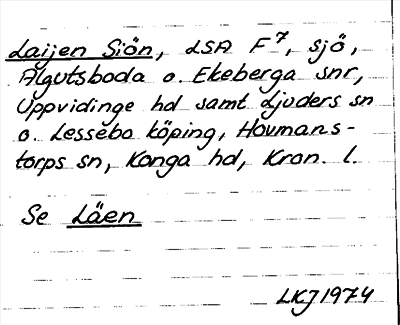 Laijen Siön, LSA F7, sjö,
Älgutsboda o. Ekeberga snr,
Uppvidinge hd samt Ljuders sn
o. Lessebo köping, Hovmans-
torps sn, Konga hd, Kron. l.
Se Läen
LKJ 1974